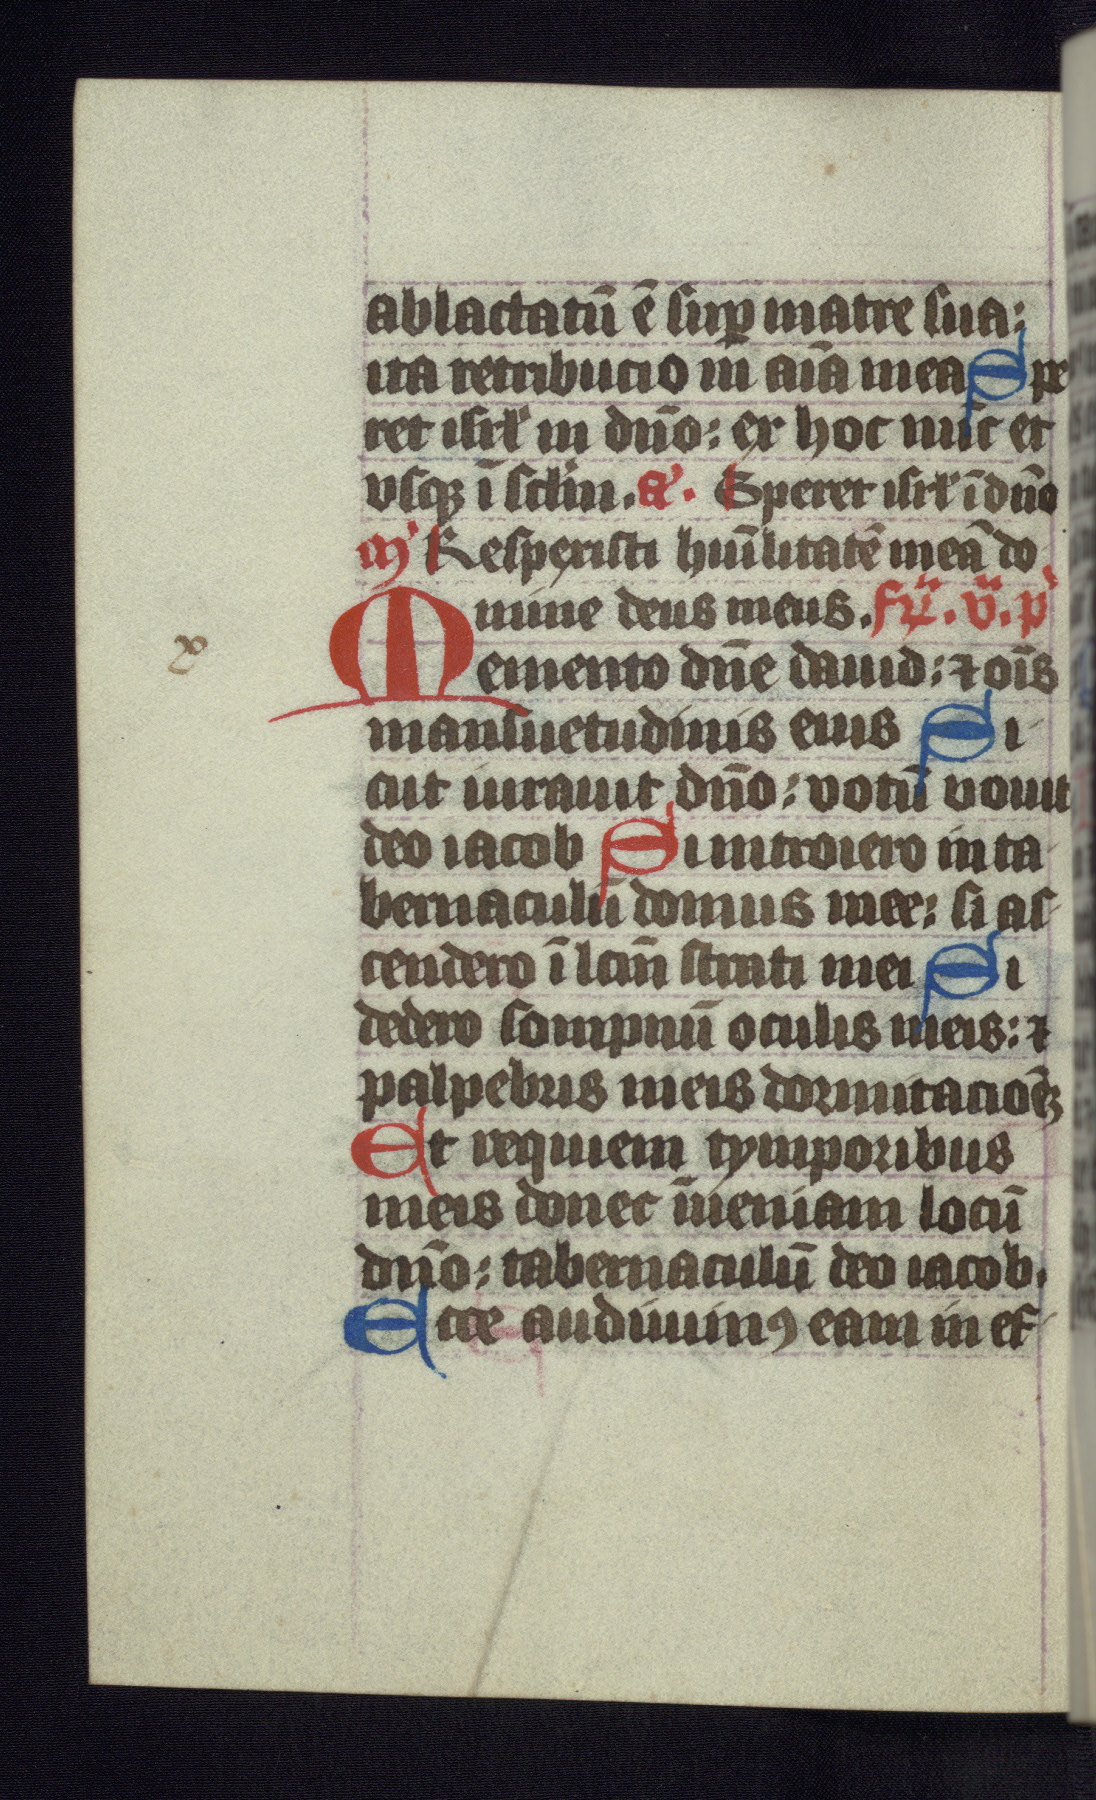 ablactatū ē suꝑ matre sua:
ita retribucio in aīa mea Spe
ret isrl̄ in dn̄o: ex hoc nūc et
vsqꝫ ī sclm̄. a'. Speret isrl̄ ī dn̄o
Respexisti hūilitatē meā do
mine deus meus. p'
Memento dn̄e dauid: ⁊ oīs
mansuetudinis eius Si
cut iurauit dn̄o: votū vouit
deo iacob Si introiero in ta
bernaculū domus mee: si as
cendero ī lcm̄ strati mei Si
dedero sompnū oculis meis: ⁊
palpebris meis dormitacioēꝫ
Et requiem tymporibus
meis donec īueniam locū
dn̄o: tabernaculū deo iacob.
Ecce audiuimꝰ eam in ef